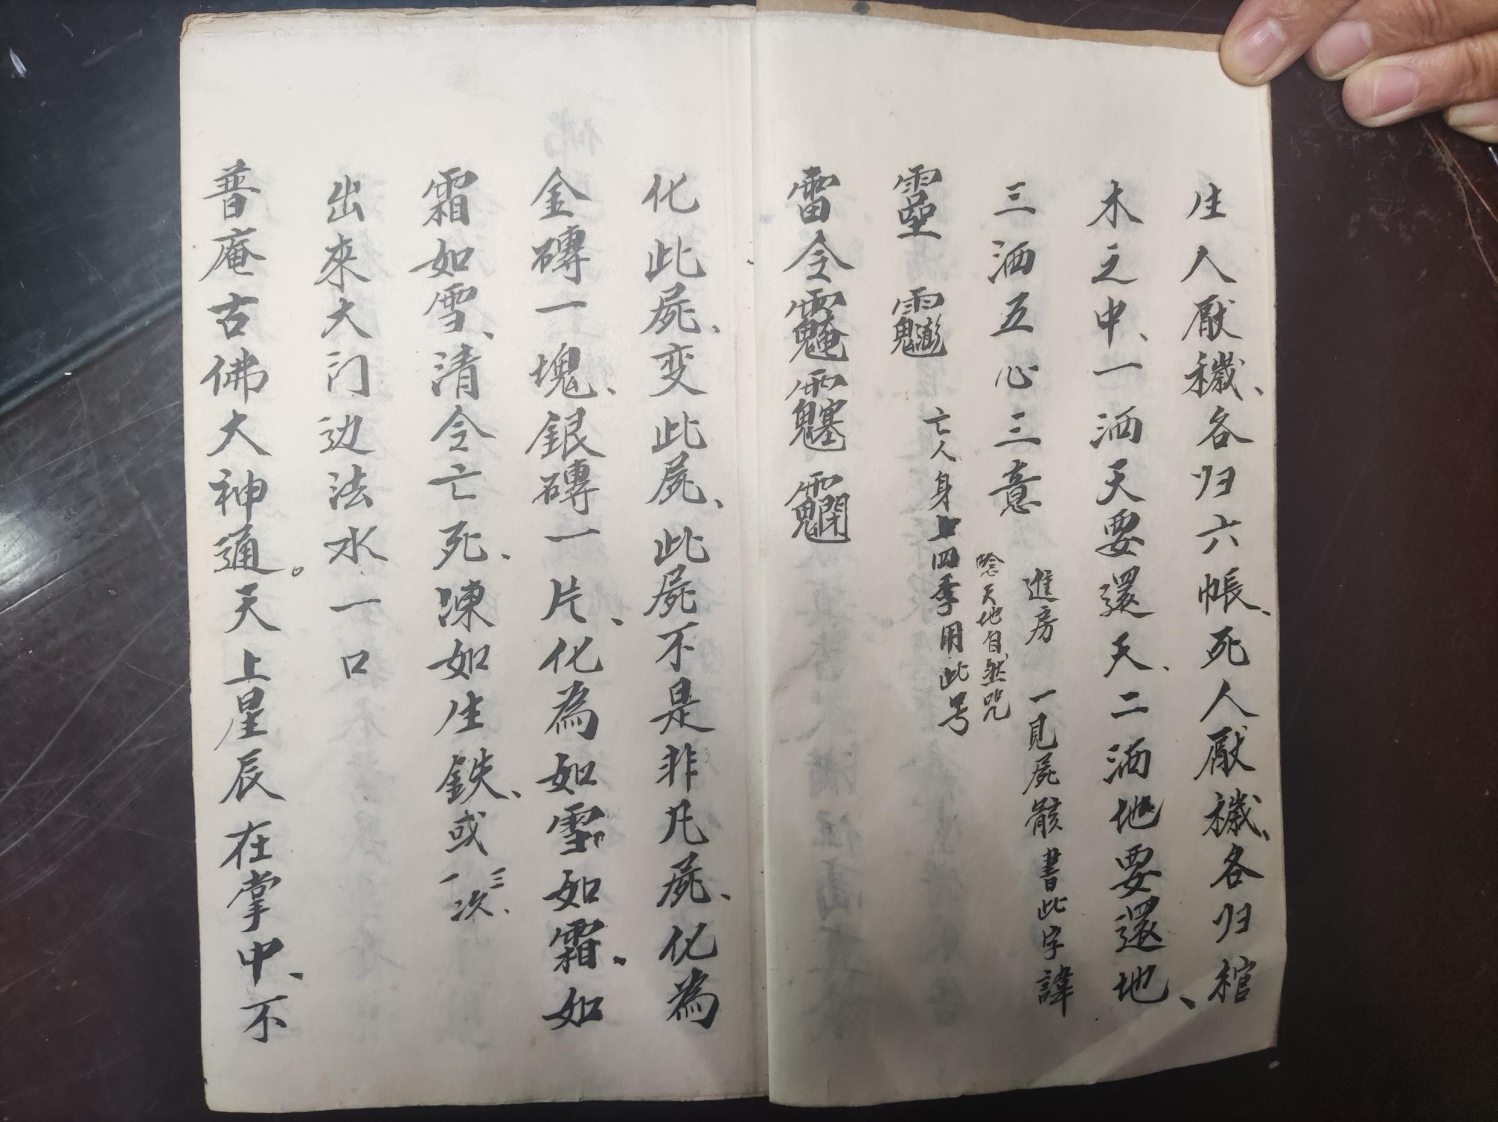 生人厭穢、各归六帳、死人厭穢、各归棺
木之中、一洒天要還天、二洒地要還地、
三洒五心三意 進房 一見屍骸書此字諱
唸天地自然咒
亡人身上四季用此号
雷令
化此屍、变此屍、此屍不是非凡屍、化為
金磚一塊、銀磚一片、化為如雪如霜、如
霜如雪、清令亡死、凍如生鉄、或一次三
出來大门边法水一口
普庵古佛大神通。天上星辰在掌中、不